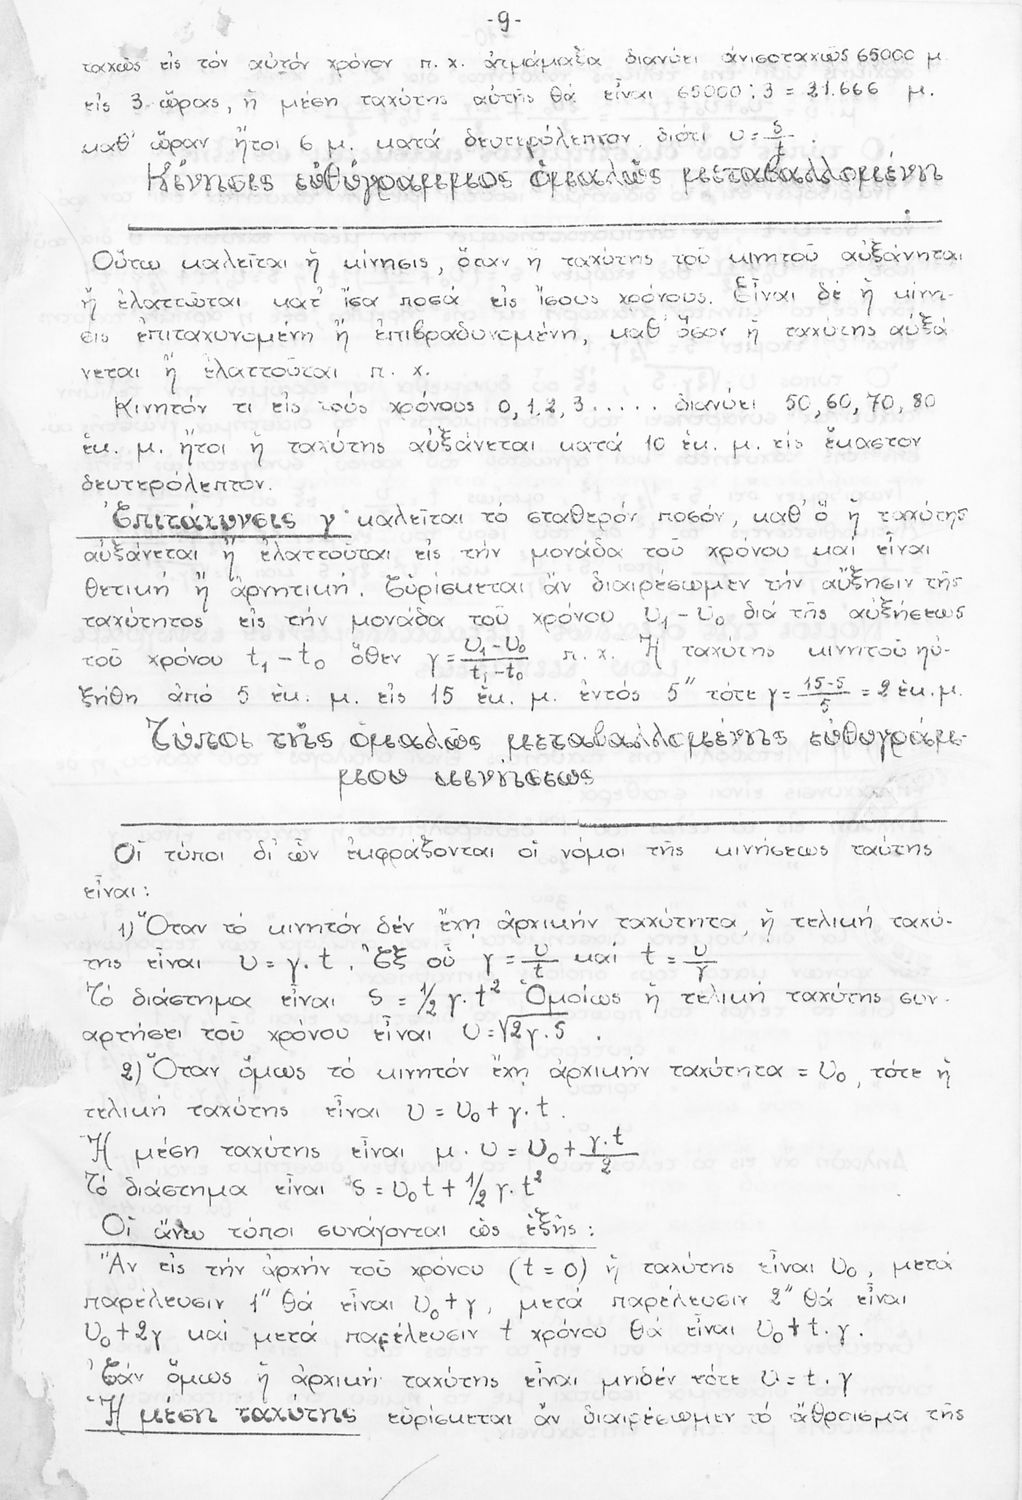 -9-
ταχῶς εἰς τόν αὐτόν χρόνον π.χ. ἀτμάμαξα διανύει ἀνισοταχῶς 65000 μ
εἰς 3 ὥρας, ἡ μέση ταχύτης αὐτῆς θά εἶναι 65000:3 = 21.666 μ.
καθ' ὥραν ἤτοι 6 μ. κατά δευτερόλεπτον διότι υ = s/t
Κίνησις εὐθύγραμμος ὁμαλῶς μεταβαλλομένη
Οὕτω καλεῖται ἡ κίνησις, ὅταν ἡ ταχύτης τοῦ κινητοῦ αὐξάνηται
ἤ ἐλαττῶται κατ' ἴσα ποσά εἰς ἴσους χρόνους. Εἶναι δέ ἡ κίνη-
σις ἐπιταχυνομένη ἤ ἐπιβραδυνομένη, καθ' ὅσον ἡ ταχύτης αὐξά
νεται ἤ ἐλαττοῦται π.χ.
Κινητόν τι εἰς τούς χρόνους 0,1,2,3..... διανύει 50,60,70,80
ἑκ. μ. ἤτοι ἡ ταχύτης αὐξάνεται κατά 10 ἑκ. μ. εἰς ἕκαστον
δευτερόλεπτον.
Ἐπιτάχυνσις γ καλεῖται τό σταθερόν ποσόν, καθ' ὅ ἡ ταχύτης
αὐξάνεται ἤ ἐλαττοῦται εἰς τήν μονάδα του χρόνου καί εἶναι
θετική ἤ ἀρνητική. Εὑρίσκεται ἄν διαιρέσωμεν τήν αὔξησιν τῆς
ταχύτητος εἰς τήν μονάδα τοῦ χρόνου υ₁ - υ₀ διά τῆς αὐξήσεως
τοῦ χρόνου t₁ - t₀ ὅθεν γ = (υ₁-υ₀)/(t₁-t₀) π.χ. Ἡ ταχύτης κινητοῦ ηὐ-
ξήθη ἀπό 5 ἑκ. μ. εἰς 15 ἑκ. μ. ἐντός 5" τότε γ = (15-5)/5 = 2 ἑκ.μ.
Τύποι τῆς ὁμαλῶς μεταβαλλομένης εὐθυγράμ-
μου κινήσεως
Οἱ τύποι δι' ὧν ἐκφράζονται οἱ νόμοι τῆς κινήσεως ταύτης
εἶναι:
1) Ὅταν τό κινητόν δέν ἔχῃ ἀρχικήν ταχύτητα, ἡ τελική ταχύ-
της εἶναι υ = γ.t. Ἐξ οὗ γ = υ/t καί t = υ/γ
Τό διάστημα εἶναι s = 1/2 γ.t² Ὁμοίως ἡ τελική ταχύτης συν.
αρτήσει τοῦ χρόνου εἶναι υ = √2γ.s .
2) Ὅταν ὅμως τό κινητόν ἔχῃ ἀρχικήν ταχύτητα = υ₀, τότε ἡ
τελική ταχύτης εἶναι υ = υ₀ + γ.t.
Ἡ μέση ταχύτης εἶναι μ.υ = υ₀ + γ.t/2
Τό διάστημα εἶναι s = υ₀t + 1/2 γ.t²
Οἱ ἄνω τύποι συνάγονται ὡς ἑξῆς:
Ἄν εἰς τήν ἀρχήν τοῦ χρόνου (t = 0) ἡ ταχύτης εἶναι υ₀, μετά
παρέλευσιν 1" θά εἶναι υ₀ + γ, μετά παρέλευσιν 2" θά εἶναι
υ₀ + 2γ καί μετά παρέλευσιν t χρόνου θά εἶναι υ₀ + t.γ.
Ἐάν ὅμως ἡ ἀρχική ταχύτης εἶναι μηδέν τότε υ = t.γ
Ἡ μέση ταχύτης εὑρίσκεται ἄν διαιρέσωμεν τό ἄθροισμα τῆς